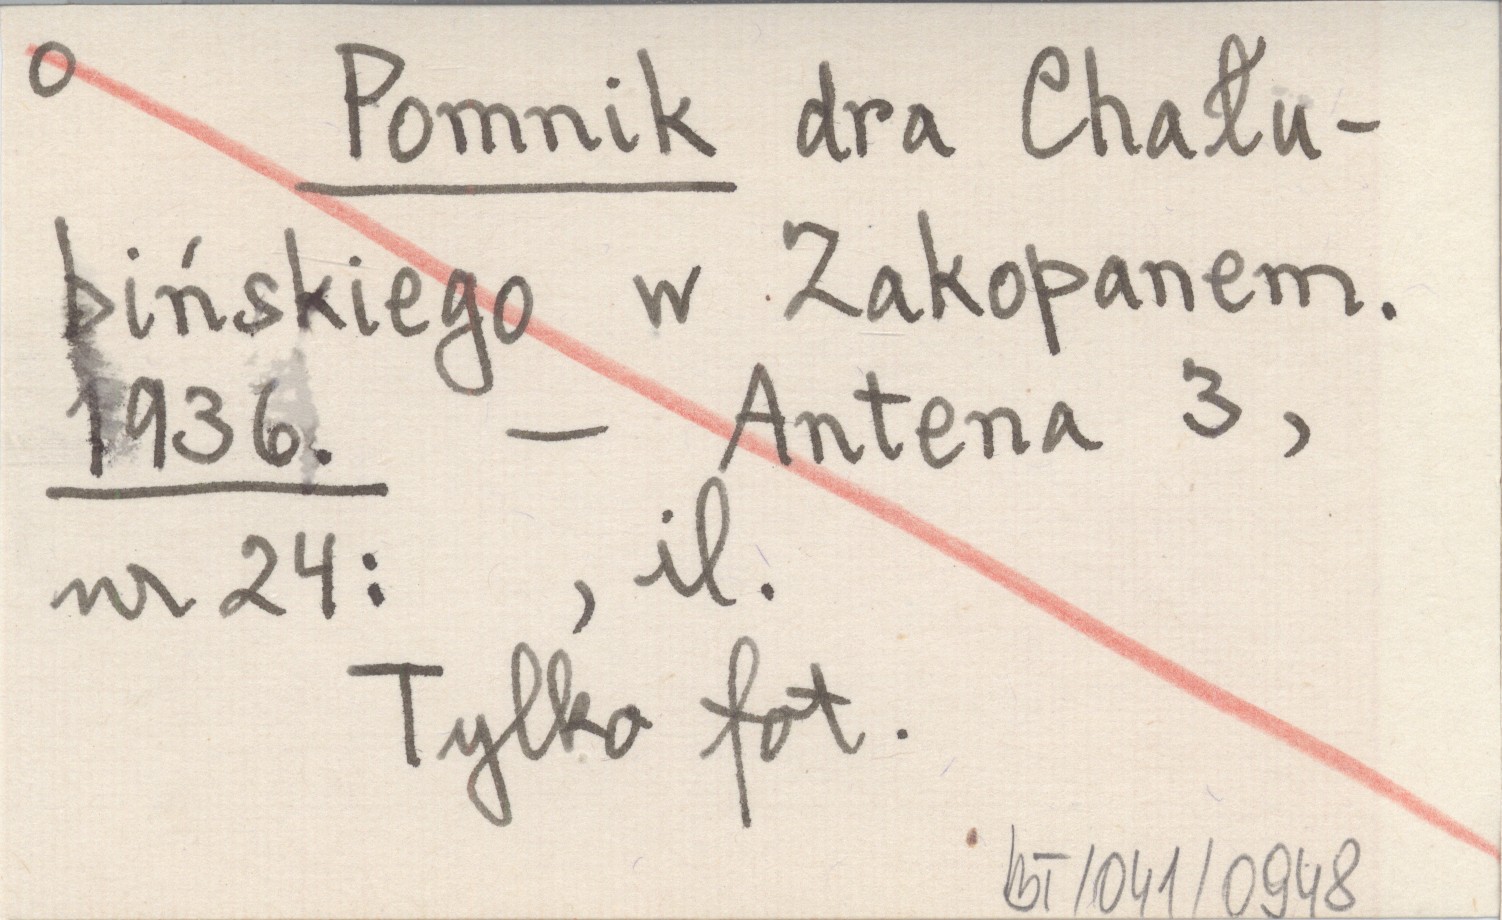 o Pomnik dra Chału-
bińskiego w Zakopanem.
1936. — Antena 3,
nr 24: , il.
Tylko fot.
bT/041/0948